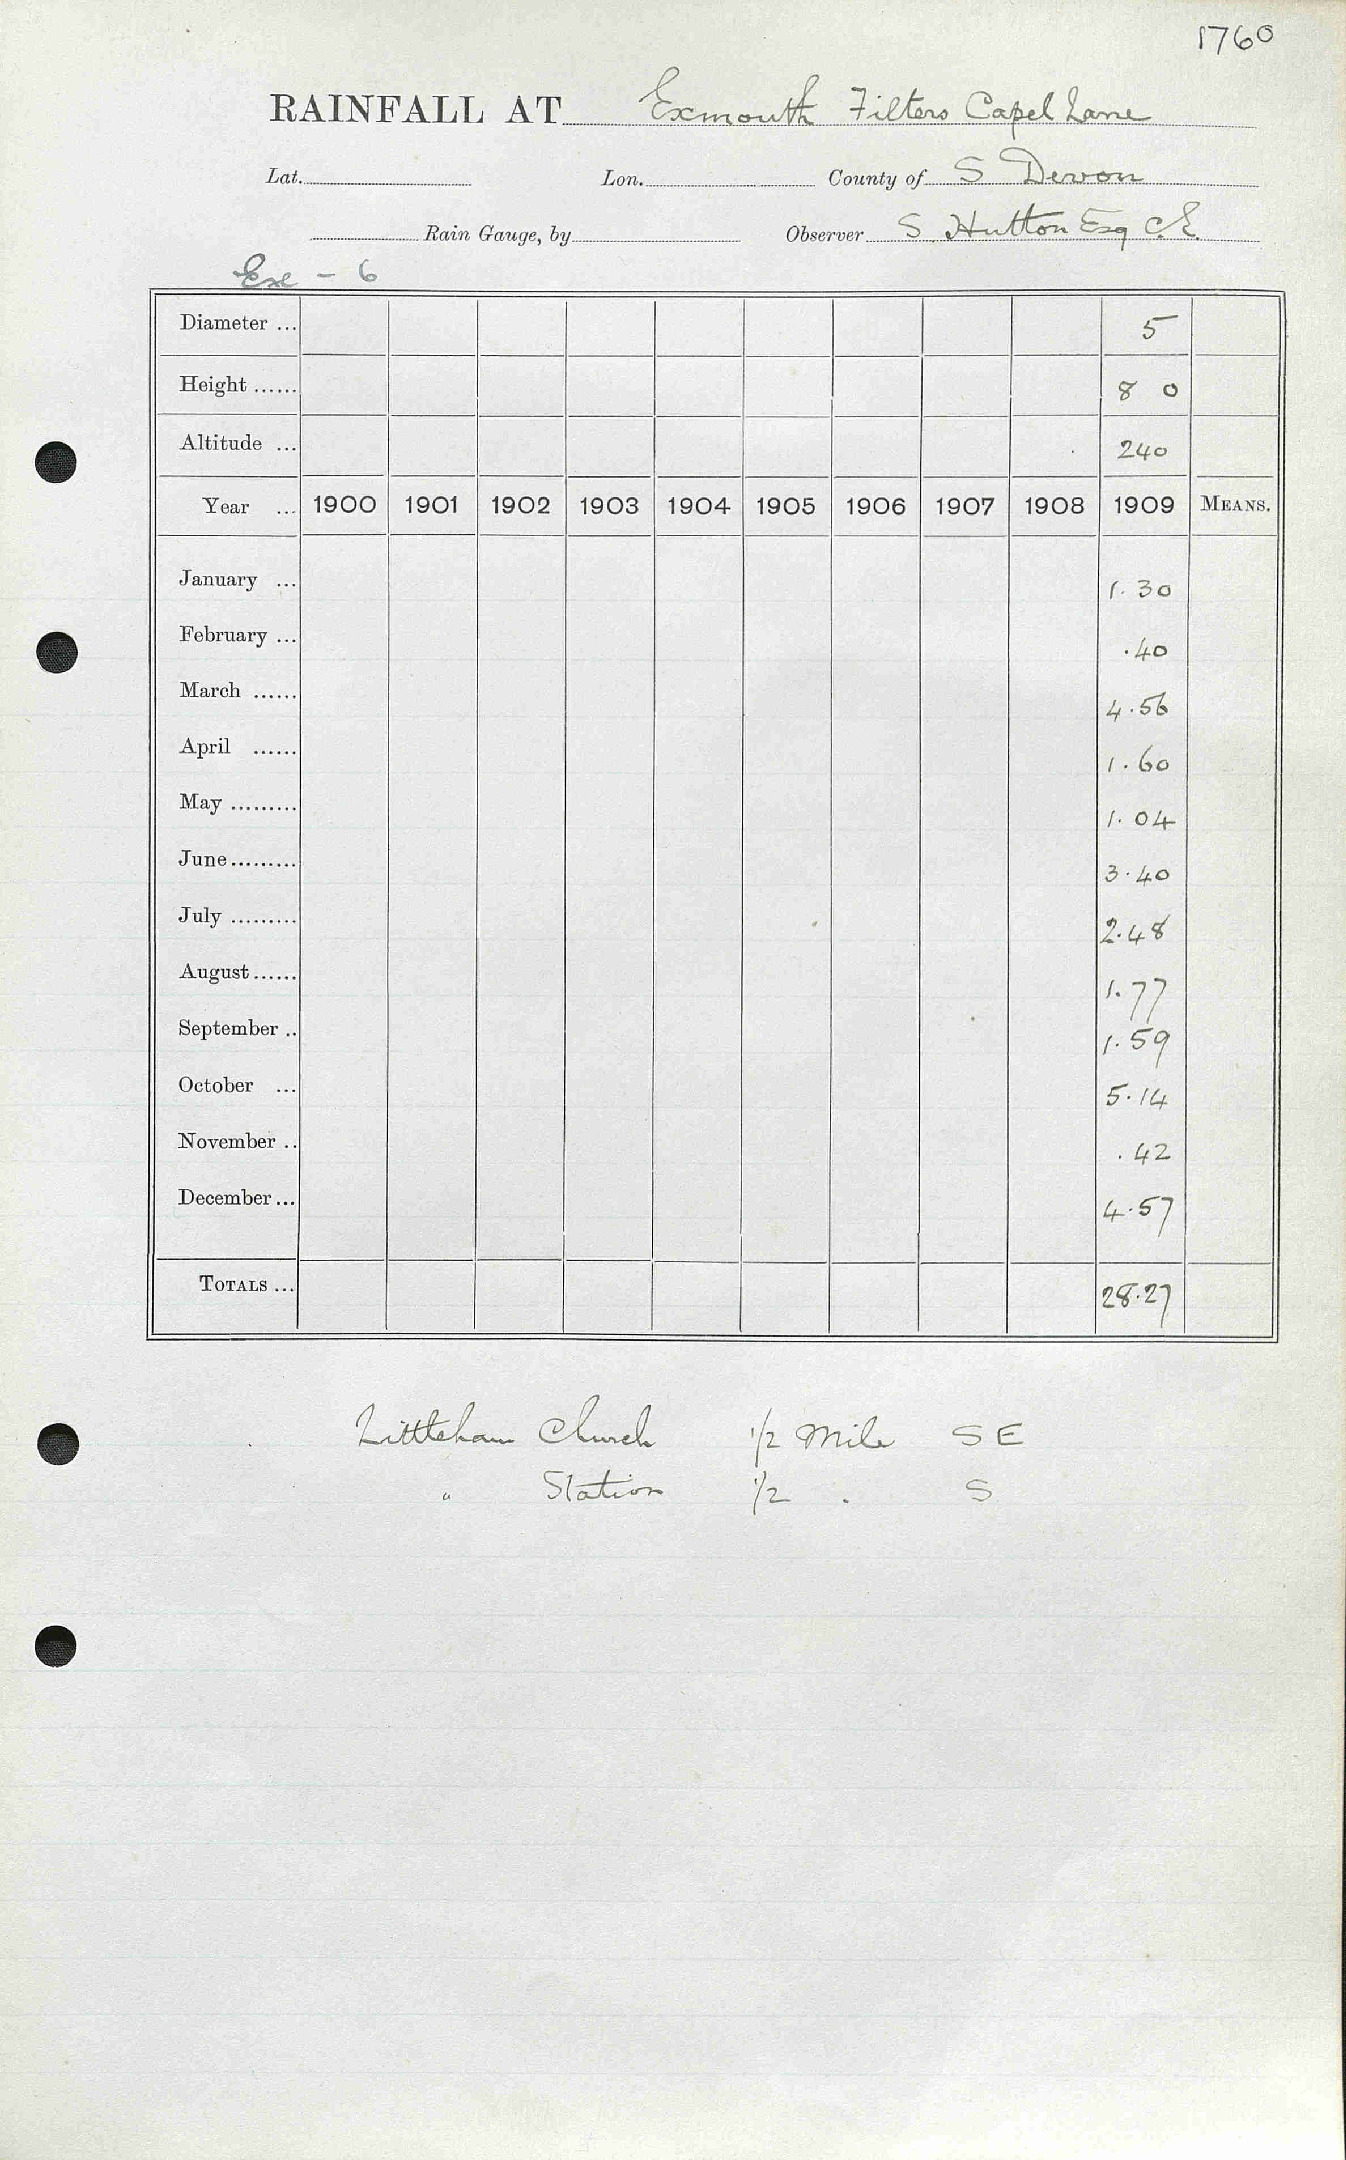 1760
RAINFALL AT Exmouth Filters Capel Lane
Lat. Lon. County of S Devon
Rain Gauge, by Observer S Hutton Esq C.E.
Exe - 6
Diameter ... 5
Height ...... 8 0
Altitude ... 240
Year ... 1900 1901 1902 1903 1904 1905 1906 1907 1908 1909 MEANS.
January ... 1.30
February ... .40
March ...... 4.56
April ...... 1.60
May ......... 1.04
June......... 3.40
July ......... 2.48
August...... 1.77
September .. 1.59
October ... 5.14
November .. .42
December... 4.57
TOTALS ... 28.27
Littleham Church 1/2 Mile SE
" Station 1/2 . S